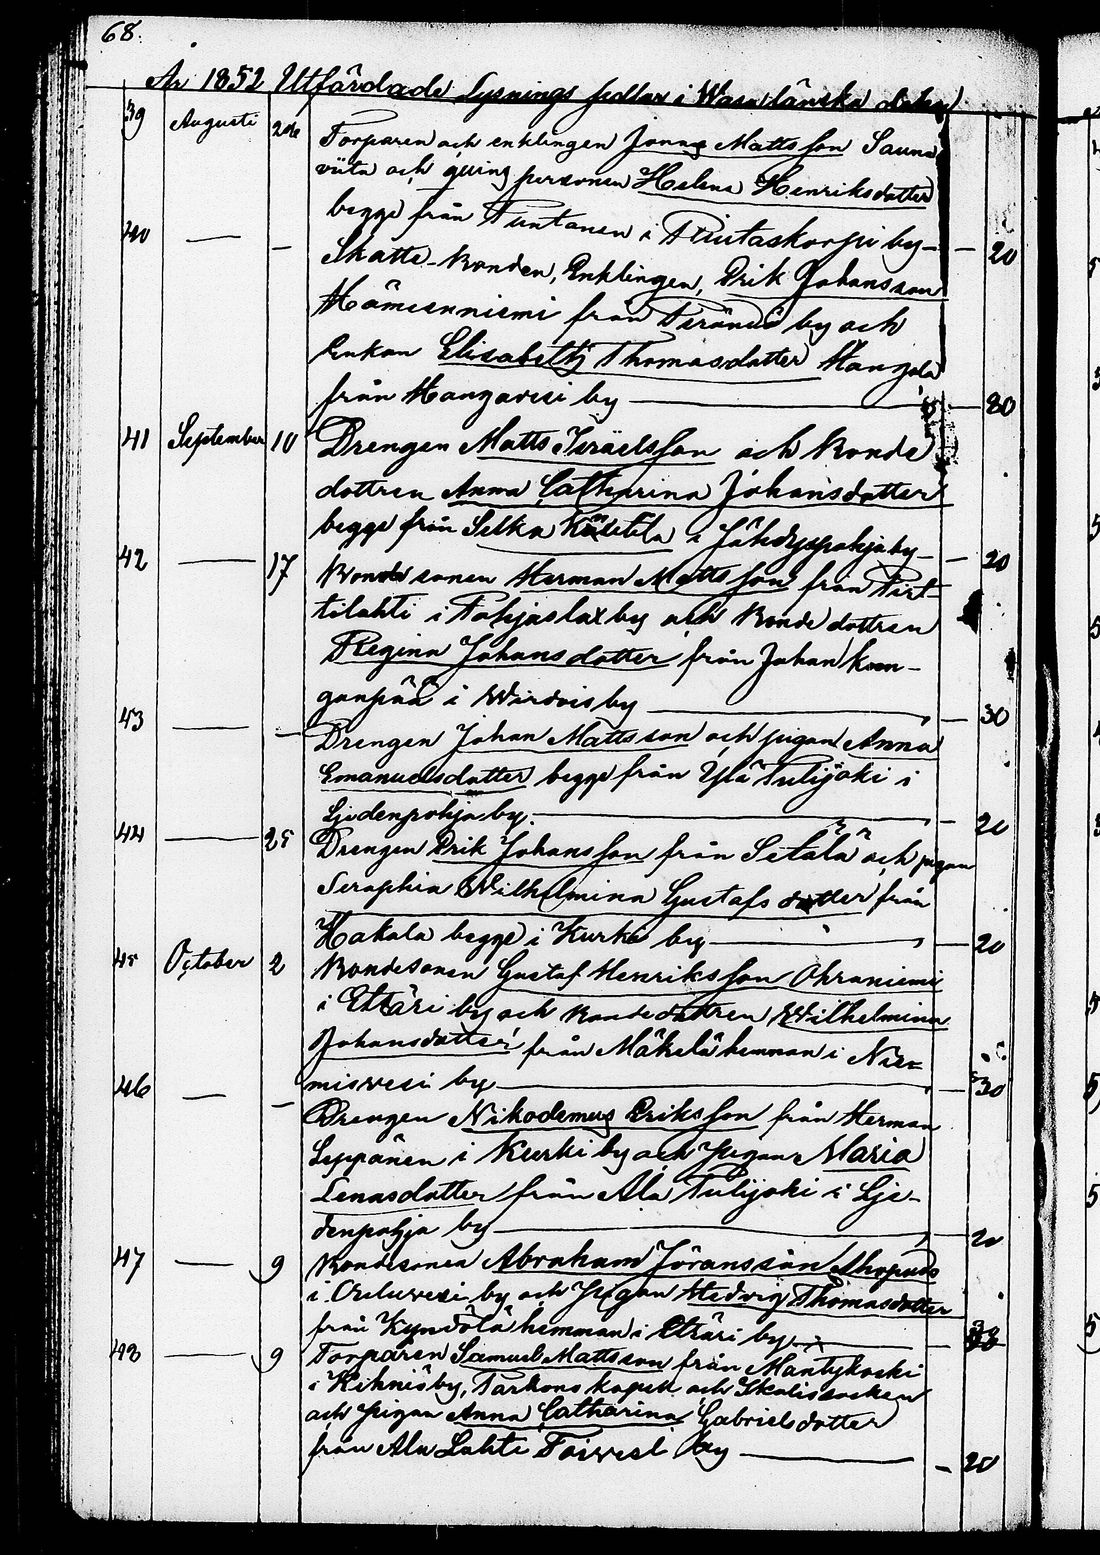 68.
År 1852 Utfärdade Lysnings sedlar i Wasa länska delen
39 Augusti 24de Torparen och enklingen Jonas Mattsson Sauna
viita och qvins personen Helena Henriksdotter
begge från Puntanen i Pintaskorpi by — 20
40 — — Skatte-Bonden, Enklingen, Erik Johansson
Hämeenniemi från Terändö by och
Enkan Elisabeth Thomasdotter Hangola
från Hangavesi by — 80
41 September 10 Drengen Matts Isräelsson och Bonde
dottren Anna Catharina Johansdotter
begge från Selka Kätkitla i Jähdyspohja by — 20
42 — 17 Bonde sonen Herman Mattsson från Pirt
tilahti i Pohjaslax by och Bonde dottren
Regina Johansdotter från Johan kan-
ganpää i Wirdois by — 30
43 — — Drengen Johan Mattsson och pigan Anna
Emanuelsdotter begge från Ylä Tulijoki i
Ljedenpohja by. — 20
44 — 25 Drengen Erik Johansson från Setälä och pigan
Seraphia Wilhelmina Gustafs dotter från
Hakala begge i Kurki by — 20
45 October 2 Bondesonen Gustaf Henriksson Ohraniemi
i Ettäri by och Bonde dottren Wilhelmina
Johansdotter från Mäkelä hemman i Nie-
misvesi by — 30
46 — — Drengen Nikodemus Eriksson från Herman
Leppänen i Kurki by och Pigan Maria
Lenasdotter från Ala Tulijoki i Lje-
denpohja by — 20
47 — 9 Bondesonen Abraham Jöransson Ahopuro
i by och Pigan Hedvig Thomasdotter
från Kyndölä hemman i Etäri by —
48 — 9 Torparen Samuel Mattsson från Mantykoski
i Kihniö by, Parkano kapell och Ikalis socken
och Pigan Anna Catharina Gabrielsdotter
från Ala Lahti Toivesi by — 20